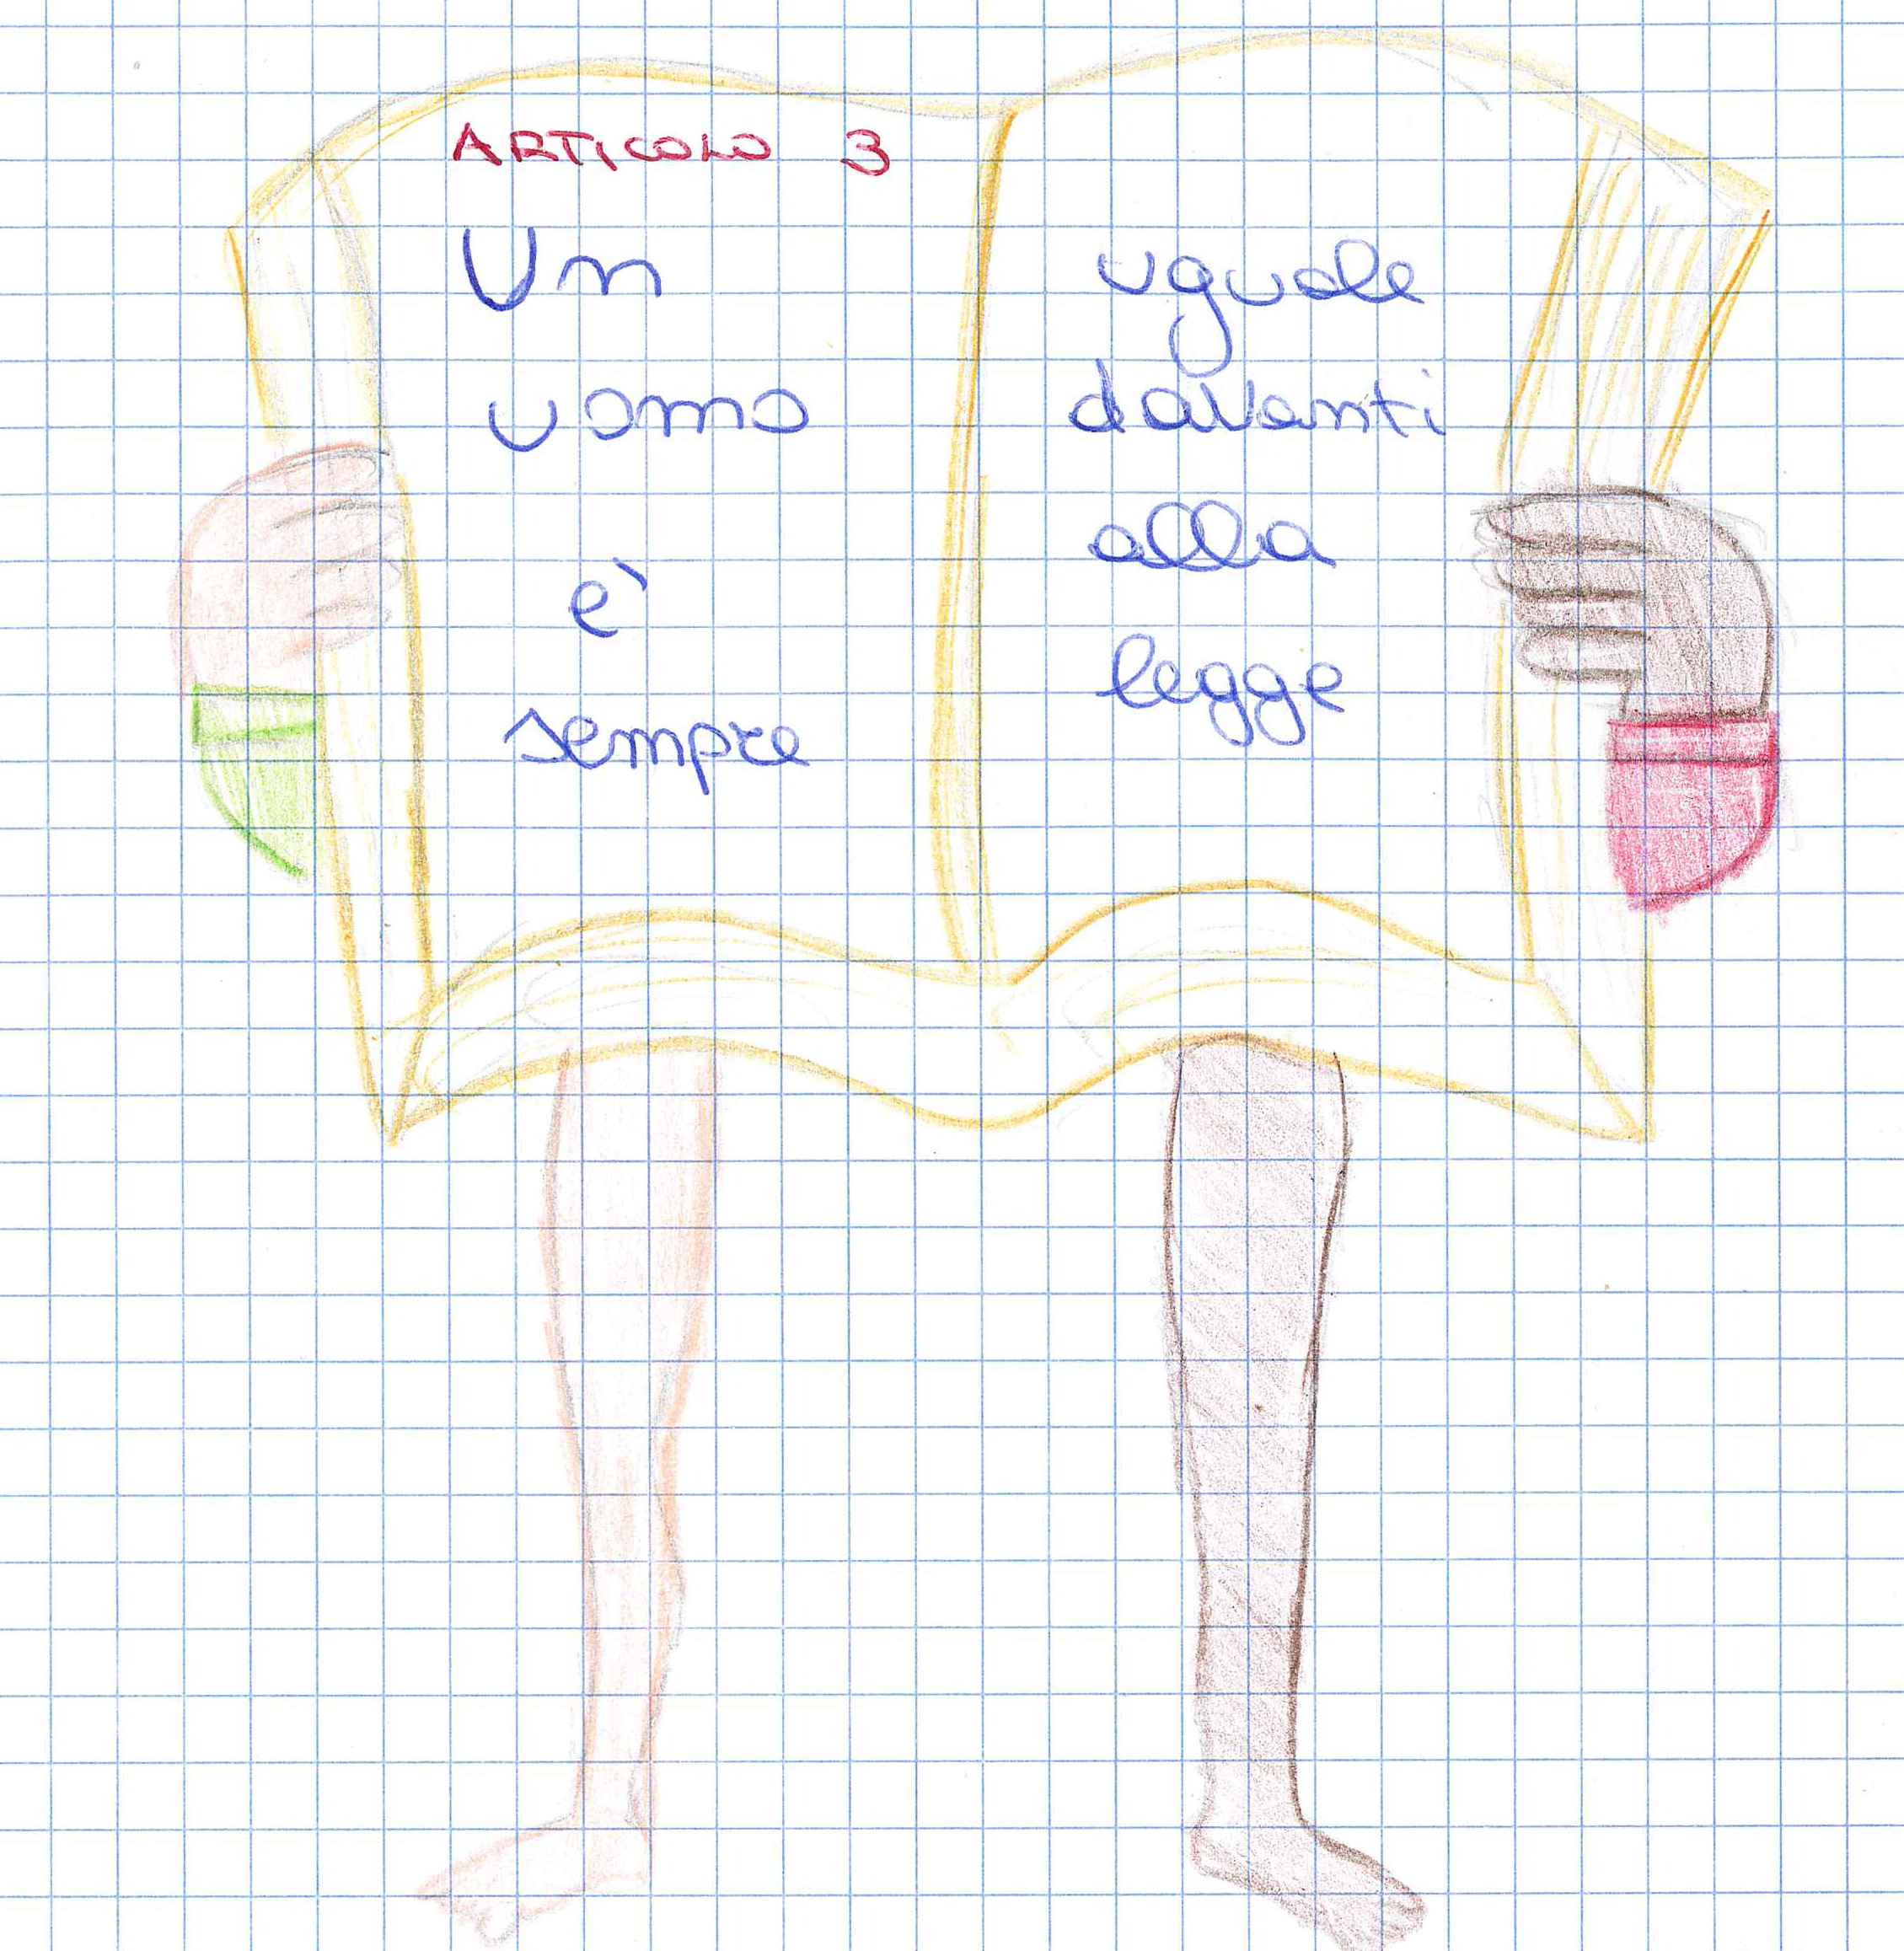 ARTICOLO 3
Un
uomo
è
sempre
uguale
davanti
alla
legge